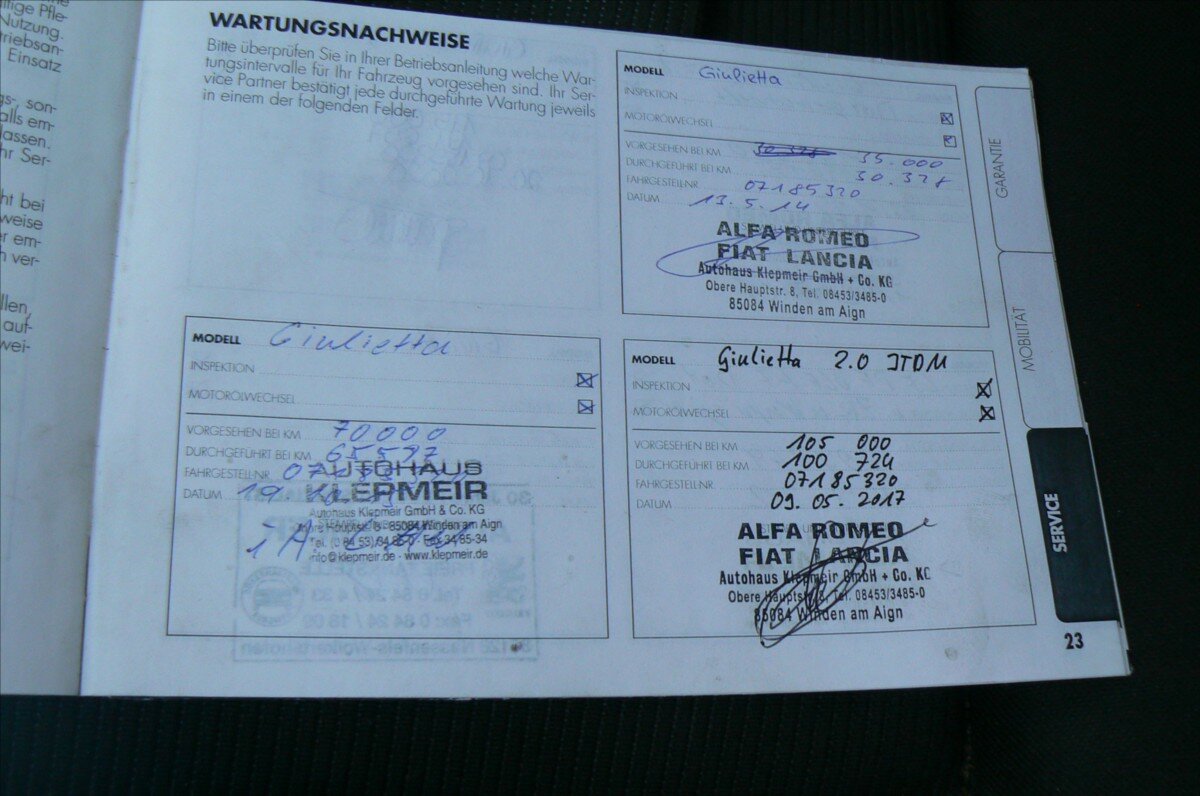 ltige Pfle-
Nutzung.
triebsan-
Einsatz
gs-, son-
alls em-
lassen.
hr Ser-
ht bei
weise
er em-
n ver-
llen,
auf-
wei-
WARTUNGSNACHWEISE
Bitte überprüfen Sie in Ihrer Betriebsanleitung welche War-
tungsintervalle für Ihr Fahrzeug vorgesehen sind. Ihr Ser-
vice Partner bestätigt jede durchgeführte Wartung jeweils
in einem der folgenden Felder.
MODELL Giulietta
INSPEKTION
MOTORÖLWECHSEL
VORGESEHEN BEI KM 30.328 35.000
DURCHGEFÜHRT BEI KM 30.328
FAHRGESTELL-NR. 07185320
DATUM 13.5.14
ALFA ROMEO
FIAT LANCIA
Autohaus Klepmeir GmbH + Co. KG
Obere Hauptstr. 8, Tel. 08453/3485-0
85084 Winden am Aign
MODELL Giulietta
INSPEKTION
MOTORÖLWECHSEL
VORGESEHEN BEI KM 70000
DURCHGEFÜHRT BEI KM 65597
FAHRGESTELL-NR.
DATUM
AUTOHAUS
KLEPMEIR
Autohaus Klepmeir GmbH & Co. KG
Hauptstr. 8 - 85084 Winden am Aign
Tel. (0 84 53) 34 85-0 · Fax 34 85-34
info@klepmeir.de · www.klepmeir.de
i.A.
MODELL Giulietta 2.0 JTDM
INSPEKTION
MOTORÖLWECHSEL
VORGESEHEN BEI KM 105 000
DURCHGEFÜHRT BEI KM 100 724
FAHRGESTELL-NR. 07185320
DATUM 09.05.2017
ALFA ROMEO
FIAT LANCIA
Autohaus Klepmeir GmbH + Co. KG
Obere Hauptstr. 8, Tel. 08453/3485-0
85084 Winden am Aign
GARANTIE
MOBILITÄT
SERVICE
23